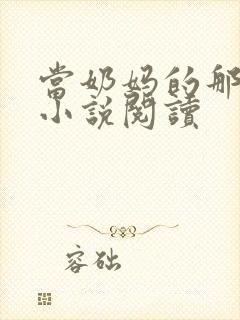 當奶妈的那
小說閱讀
容础